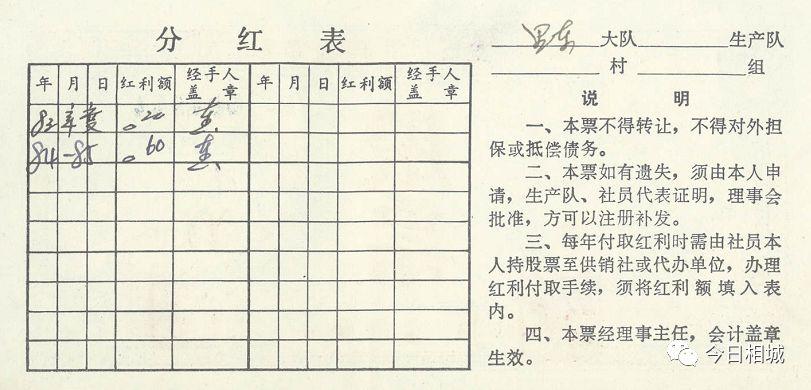 分 红 表
年 月 日 红利额 经手人盖章 年 月 日 红利额 经手人盖章
83年度 0.20
84-85 0.60
大队 生产队
村 组
说 明
一、本票不得转让，不得对外担
保或抵偿债务。
二、本票如有遗失，须由本人申
请，生产队、社员代表证明，理事会
批准，方可以注册补发。
三、每年付取红利时需由社员本
人持股票至供销社或代办单位，办理
红利付取手续，须将红利额填入表
内。
四、本票经理事主任，会计盖章
生效。
今日相城